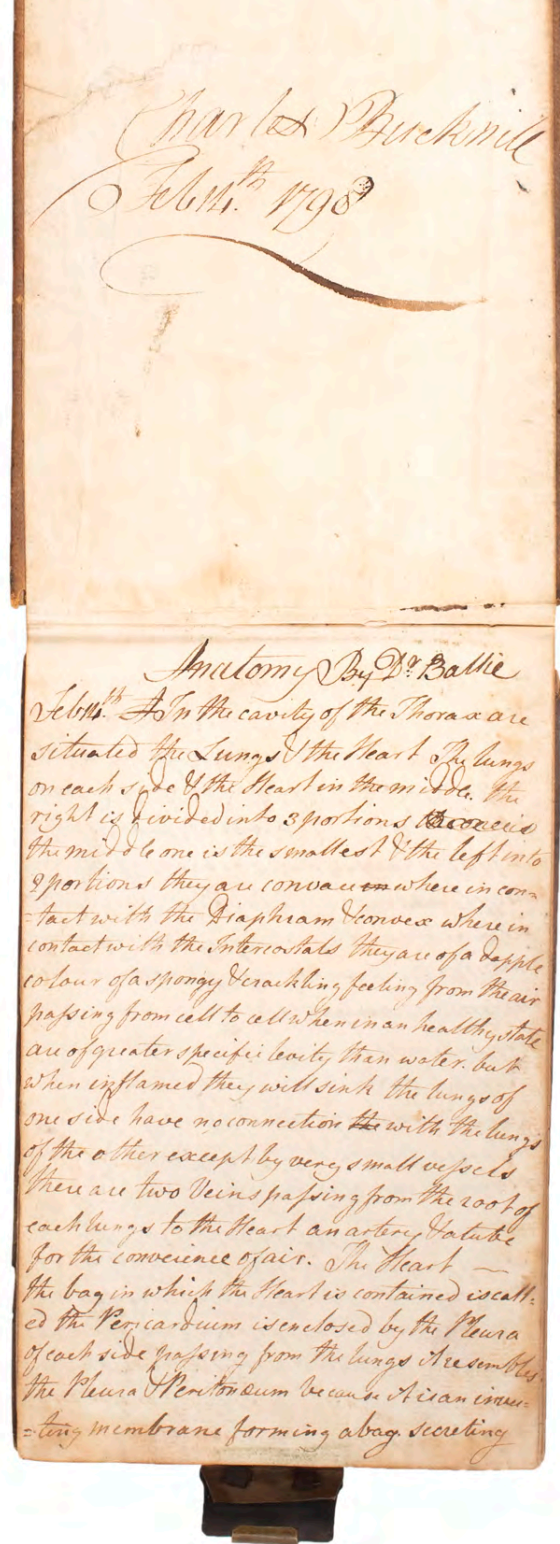 Charles Birckmill
Feb 14th. 1798
Anatomy By Dr. Ballie
Feb 14th. In the cavity of the Thorax are
situated the Lungs & the Heart The lungs
on each side & the Heart in the middle. the
right is divided into 3 portions
the middle one is the smallest & the left into
2 portions they are concave where in con=
=tact with the Diaphram & convex where in
contact with the Intercostals they are of a dapple
colour of a spongy & crackling feeling from the air
passing from cell to cell when in an healthy state
are of greater specific levity than water. but
when inflamed they will sink the lungs of
one side have no connection the with the lungs
of the other except by very small vessels
there are two Veins passing from the root of
each lungs to the Heart an artery & a tube
for the convenience of air. The Heart —
the bag in which the Heart is contained is call=
ed the Pericardium is enclosed by the Pleura
of each side passing from the lungs it resembles
the Pleura & Peritonæum because it is an inves=
=ting membrane forming a bag. secreting